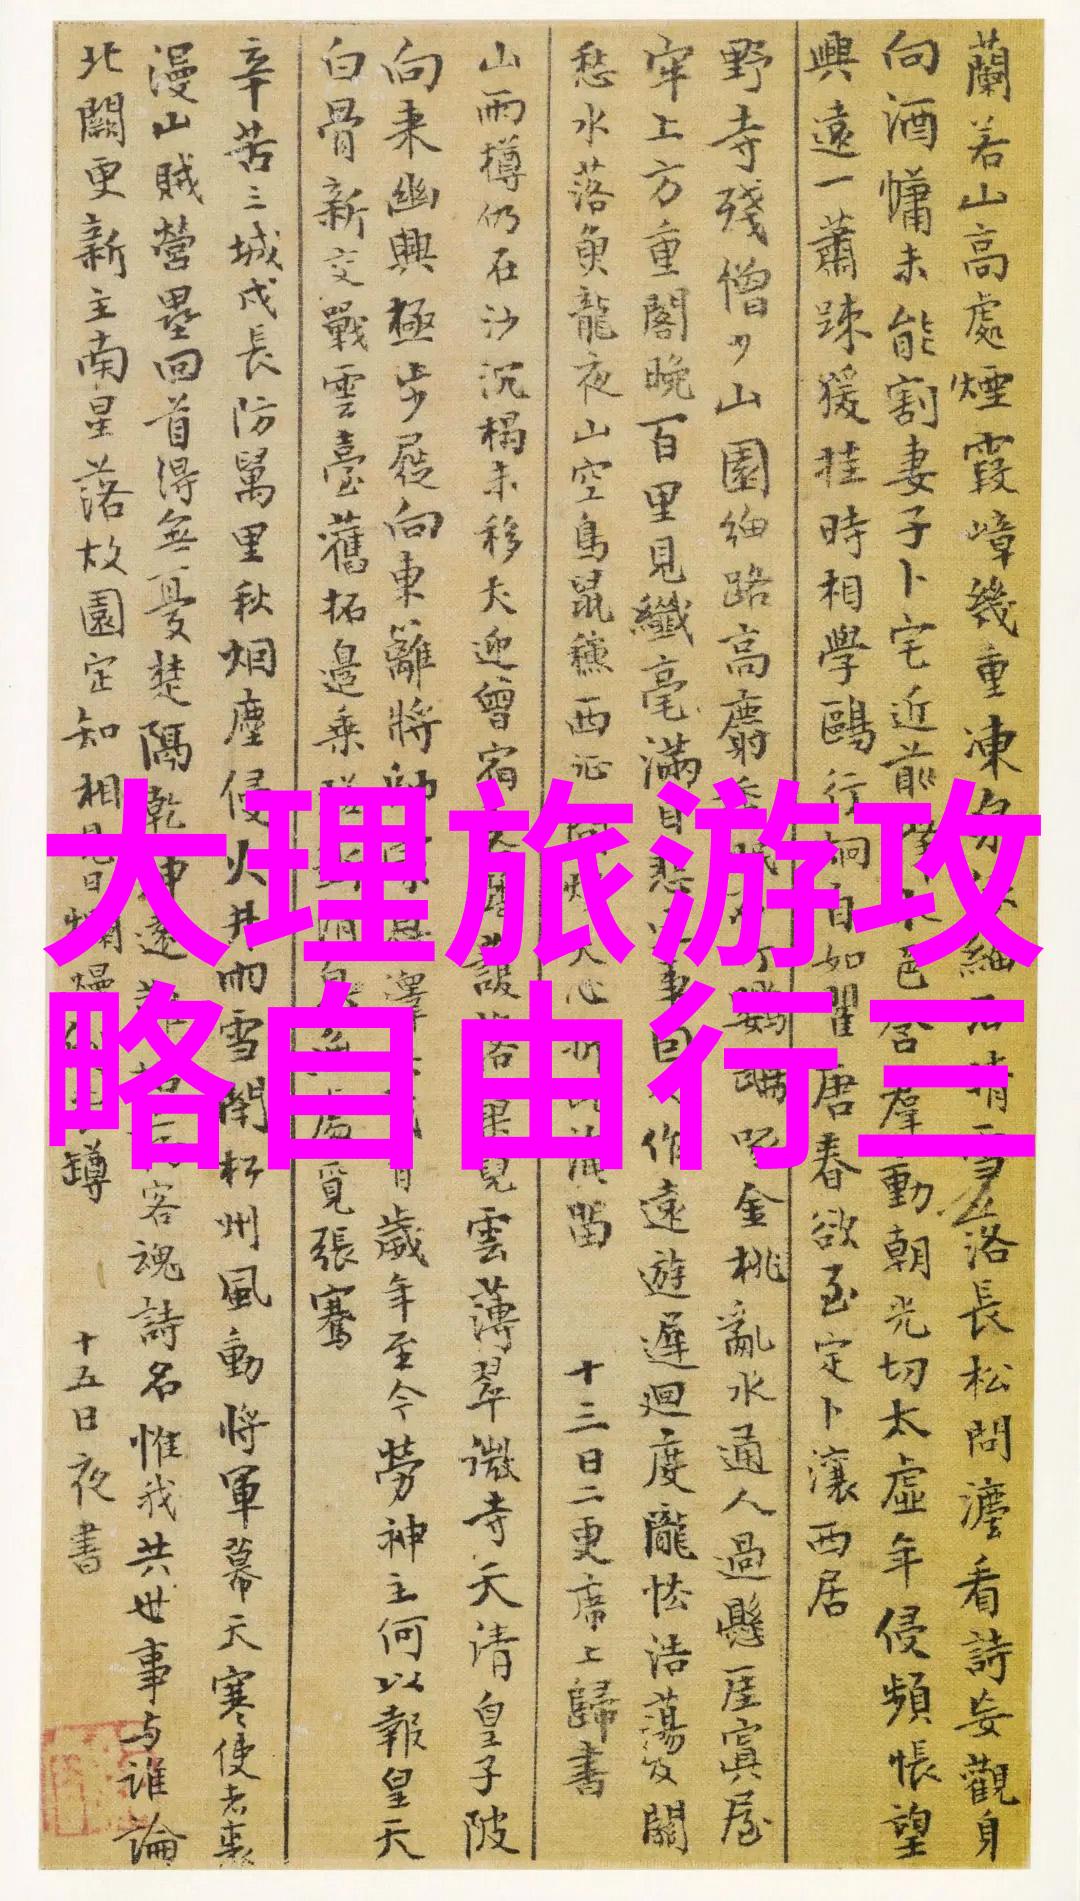 蘭若山高處煙霞嶂幾重凍
洛長松問灋看詩妄觀身
向酒慵未能割妻子卜宅近前
動朝光切太虛年侵頻悵望
興遠一蕭踈猨挂時相學鷗行
自如瞿唐春欲至定卜瀼西居
野寺殘僧少山園細路高麝
金桃亂水通人過懸崖置屋
牢上方重閣晚百里見纖毫滿目悲
事因
作遠遊遲迴度隴怯浩蕩及關
愁水落魚龍夜山空鳥鼠穐西征
留 十三日二更席上歸書
山雨樽仍在沙沉榻未移犬迎曾宿
果見雲薄翠微寺天清皇子陂
向来幽興極步屣向東籬將
歲年至今勞神主何以報皇天
白骨新交戰雲臺舊拓邊乘
覓張騫
辛苦三城戍長防萬里秋烟塵侵火井雨雪閉松州風動將軍幕天寒使者裘
漫山賊營壘回首得無憂楚隔乾坤遠
客魂詩名惟我共世事与誰論
北闕更新主南星落故園定知相見日爛熳
罇 十五日夜書
大理旅游攻
略自由行三